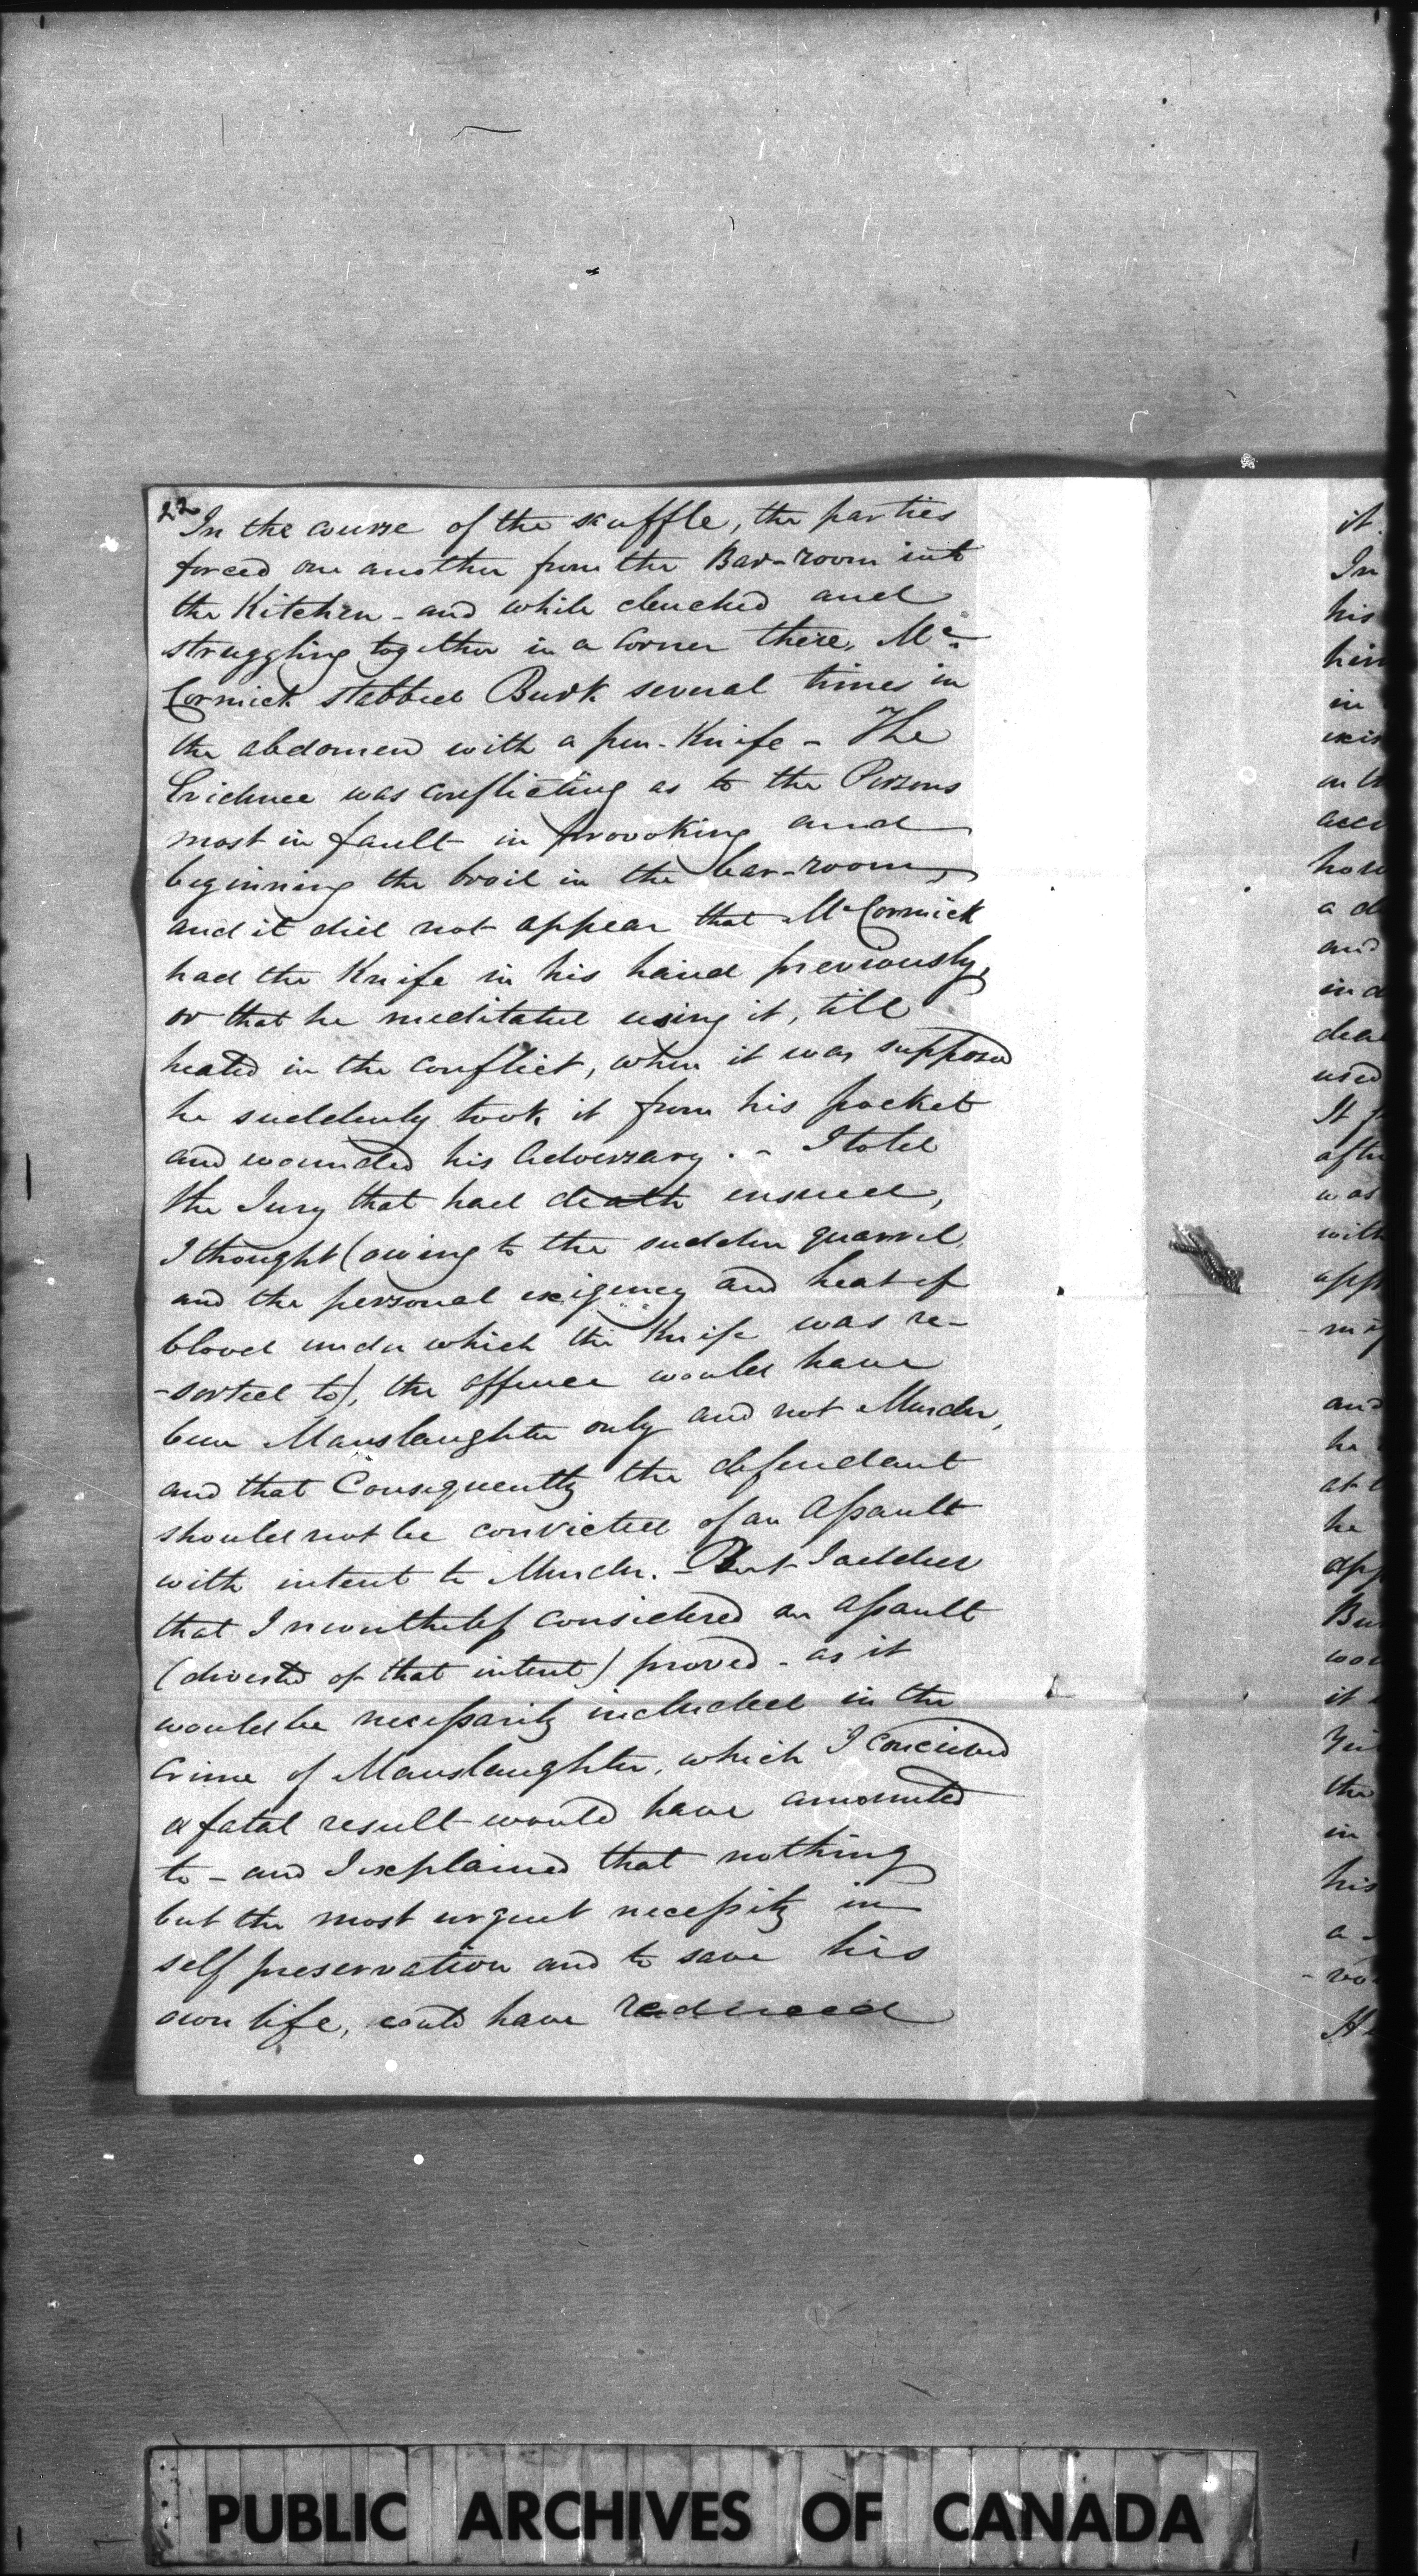 22
In the course of the scuffle, the parties
forced one another from the Bar-room into
the Kitchen - and while clenched and
struggling together in a Corner there, Mc
Cormick stabbed Burk several times in
the abdomen with a pen-Knife - The
Evidence was conflicting as to the Persons
most in fault in provoking and
beginning the broil in the bar-room,
and it did not appear that McCormick
had the Knife in his hand previously,
or that he meditated using it, till
heated in the conflict, when it was supposed
he suddenly took it from his pocket
and wounded his Adversary. - I told
the Jury that had death ensued,
I thought (owing to the sudden quarrel,
and the personal exigency and heat of
blood under which the Knife was re-
-sorted to), the offence would have
been Manslaughter only and not Murder,
and that Consequently the defendant
should not be convicted of an Assault
with intent to Murder. - But I added
that I nevertheless considered an assault
(divested of that intent) proved - as it
would be necessarily included in the
Crime of Manslaughter, which I conceived
a fatal result would have amounted
to - and I explained that nothing
but the most urgent necessity in
self preservation and to save his
own life, could have reduced
it
In
his
him
in
on th
acci
a d
and
in d
used
was
with
and
he
at t
he
it
the
in
his
a
PUBLIC ARCHIVES OF CANADA